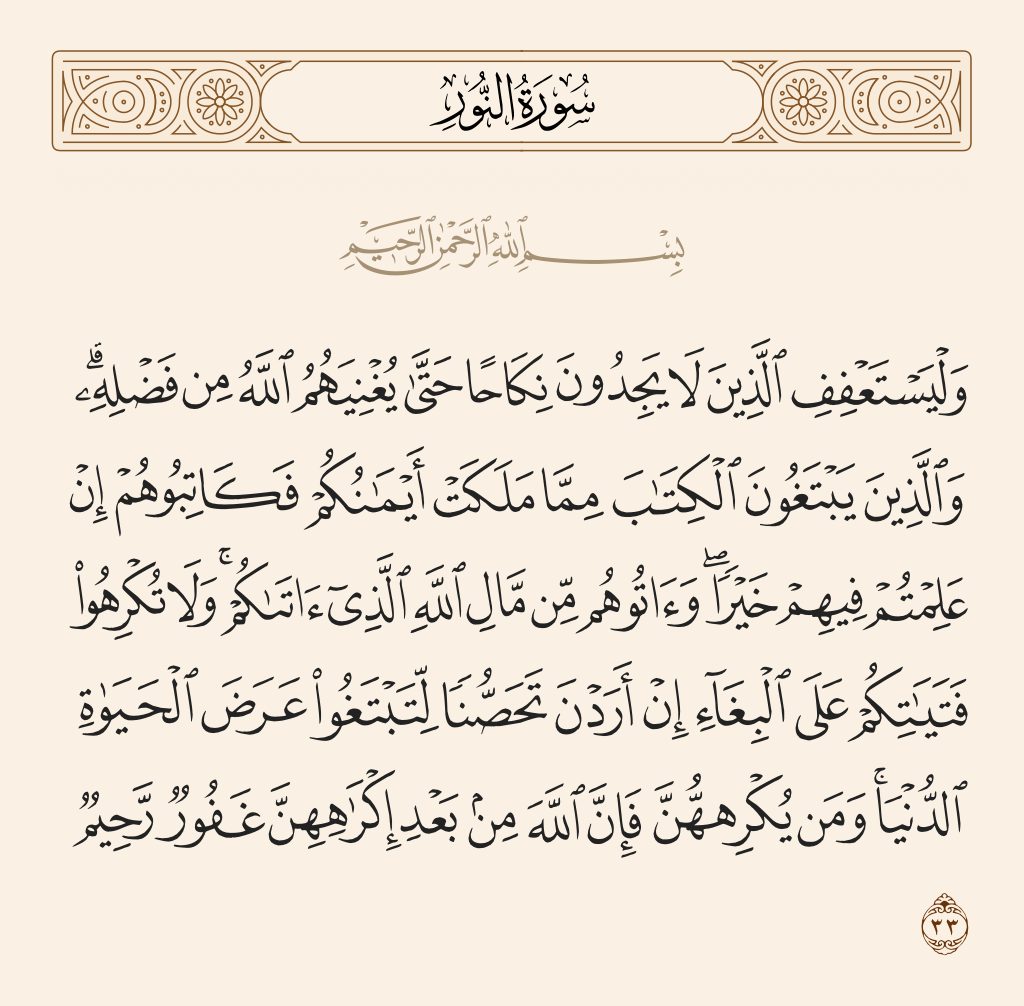 سُورَةُ النُّورِ
بِسْمِ ٱللَّهِ ٱلرَّحْمَٰنِ ٱلرَّحِيمِ
وَلْيَسْتَعْفِفِ ٱلَّذِينَ لَا يَجِدُونَ نِكَاحًا حَتَّىٰ يُغْنِيَهُمُ ٱللَّهُ مِن فَضْلِهِۦۗ
وَٱلَّذِينَ يَبْتَغُونَ ٱلْكِتَٰبَ مِمَّا مَلَكَتْ أَيْمَٰنُكُمْ فَكَاتِبُوهُمْ إِنْ
عَلِمْتُمْ فِيهِمْ خَيْرًاۖ وَءَاتُوهُم مِّن مَّالِ ٱللَّهِ ٱلَّذِىٓ ءَاتَىٰكُمْۚ وَلَا تُكْرِهُوا۟
فَتَيَٰتِكُمْ عَلَى ٱلْبِغَآءِ إِنْ أَرَدْنَ تَحَصُّنًا لِّتَبْتَغُوا۟ عَرَضَ ٱلْحَيَوٰةِ
ٱلدُّنْيَاۚ وَمَن يُكْرِههُّنَّ فَإِنَّ ٱللَّهَ مِنۢ بَعْدِ إِكْرَٰهِهِنَّ غَفُورٌ رَّحِيمٌ
٣٣